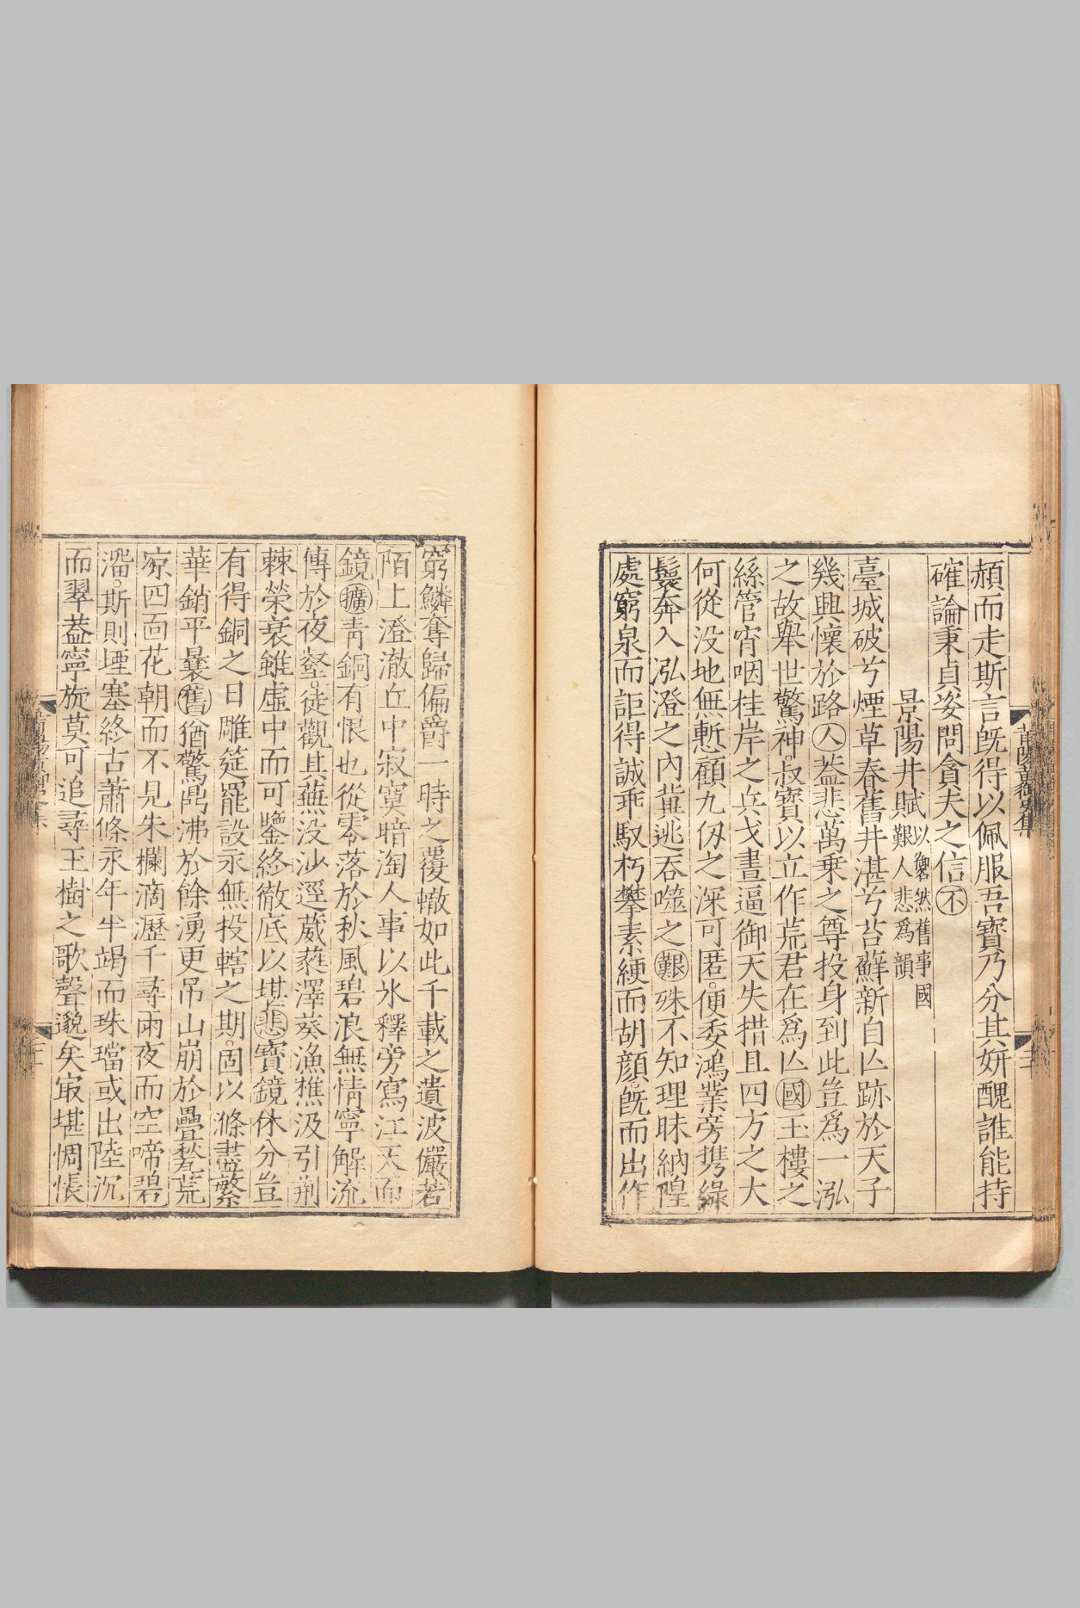 頳而走斯言旣得以佩服吾寶乃分其姸醜誰能持
確論秉貞姿問貪夫之信不
景陽井賦以儼然舊事國艱人悲爲韻
臺城破兮煙草春舊井湛兮苔蘚新自亾跡於天子
幾興懷於路人葢悲萬乗之尊投身到此豈爲一泓
之故舉世驚神叔寶以立作荒君在爲亾國玉樓之
絲管宵咽桂岸之兵戈晝逼御天失措且四方之大
何從没地無慙顧九仭之深可匿便委鴻業旁携緑
鬟奔入泓澄之內冀逃吞噬之艱殊不知理昧納隍
處窮泉而詎得誠乖馭朽攀素綆而胡顔旣而出作
窮鱗奪歸偏爵一時之覆轍如此千載之遺波儼若
陌上澄澈丘中寂寞暗淘人事以氷釋旁寫江天而
鏡擴靑銅有恨也從零落於秋風碧浪無情寧解流
傳於夜壑徒觀其蕪没沙逕葳蕤澤葵漁樵汲引荆
棘榮衰雖虛中而可鑒終徹底以堪悲寶鏡休分豈
有得銅之日雕筵罷設永無投轄之期固以滌盡繁
華銷平曩舊猶驚鼎沸於餘湧更吊山崩於疊甃荒
凉四面花朝而不見朱欄滴瀝千尋雨夜而空啼碧
溜斯則堙塞終古蕭條永年半竭而珠璫或出陸沉
而翠葢寧旋莫可追尋玉樹之歌聲邈矣㝡堪惆悵
莆陽黄御史集